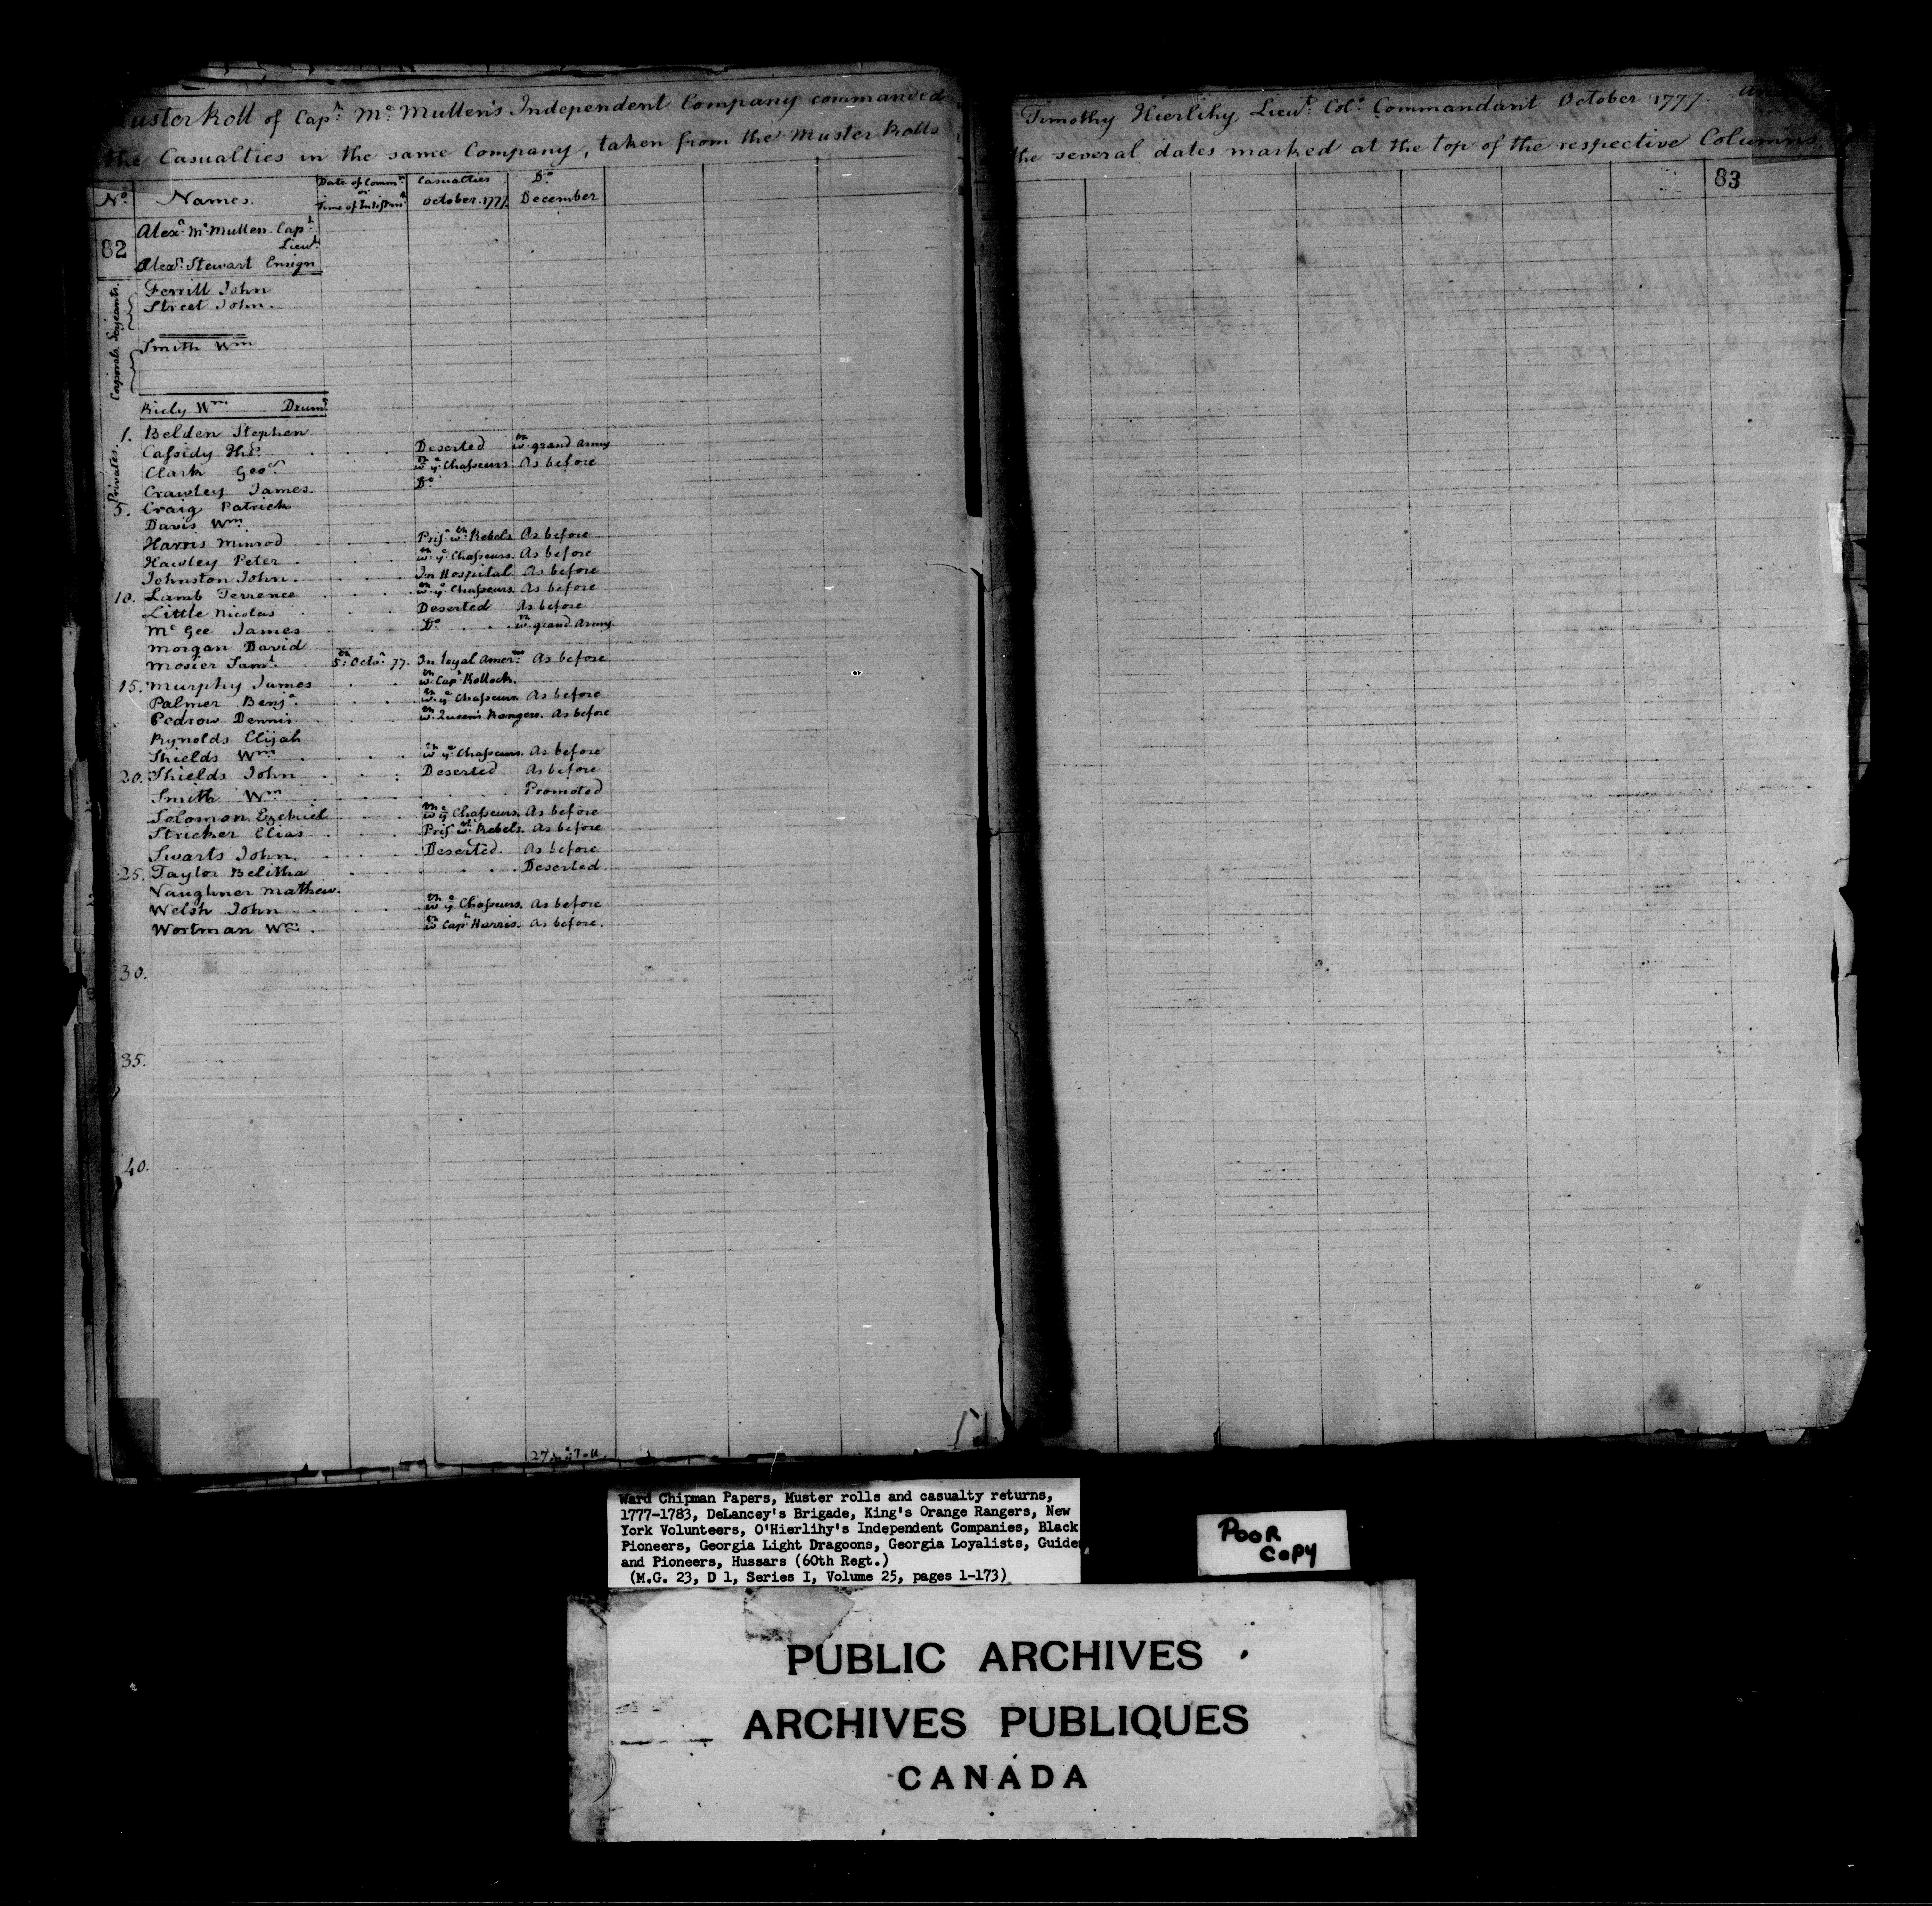 uster Roll of Capt. Mc. Mullen's Independent Company commanded
the Casualties in the same Company, taken from the Muster Rolls
No. Names. Date of Commn. or Time of Inlistmt. Casualties October. 1777. Do. December
82
Alexr. Mc. Mullen. Capt.
Lieut.
Alexr. Stewart Ensign
Serjeants.
Ferrill John
Street John.
Corporals.
Smith Wm
Riely Wm Drumr.
Privates.
1. Belden Stephen
Cassidy Thos. Deserted wth. grand Army
Clark Geo. wth. ye. Chasseurs As before
Crawley James. Do.
5. Craig Patrick
Davis Wm
Harris Minrod Prisr. wth. Rebels As before
Hawley Peter wth. ye. Chasseurs. As before
Johnston John. In Hospital. As before
10. Lamb Terrence wth. ye. Chasseurs. As before
Little Nicolas Deserted As before
Mc Gee James Do. wth. grand Army
Morgan David
Mosier Saml. 5th. Octr. 77. In loyal Amern. As before
15. Murphy James wth. Capt. Kollock.
Palmer Benja. wth. ye. Chasseurs. As before
Pedrow Dennis wth. Queen's Rangers. As before
Rynolds Elijah
Shields Wm wth. ye. Chasseurs. As before
20. Shields John Deserted As before
Smith Wm Promoted
Solomon Ezekiel wth. ye Chasseurs. As before
Stricker Elias Prisr. wth. Rebels. As before
Swarts John. Deserted. As before
25. Taylor Belitha Deserted
Vaughner Mathew.
Welsh John wth. ye Chasseurs. As before
Wortman Wm. wth Capt. Harris. As before.
30.
35.
40.
Timothy Hierlihy Lieut. Colo. Commandant October 1777. an
the several dates marked at the top of the respective Columns
83
Ward Chipman Papers, Muster rolls and casualty returns,
1777-1783, DeLancey's Brigade, King's Orange Rangers, New
York Volunteers, O'Hierlihy's Independent Companies, Black
Pioneers, Georgia Light Dragoons, Georgia Loyalists, Guides
and Pioneers, Hussars (60th Regt.)
(M.G. 23, D 1, Series I, Volume 25, pages 1-173)
POOR
COPY
PUBLIC ARCHIVES
ARCHIVES PUBLIQUES
CANADA